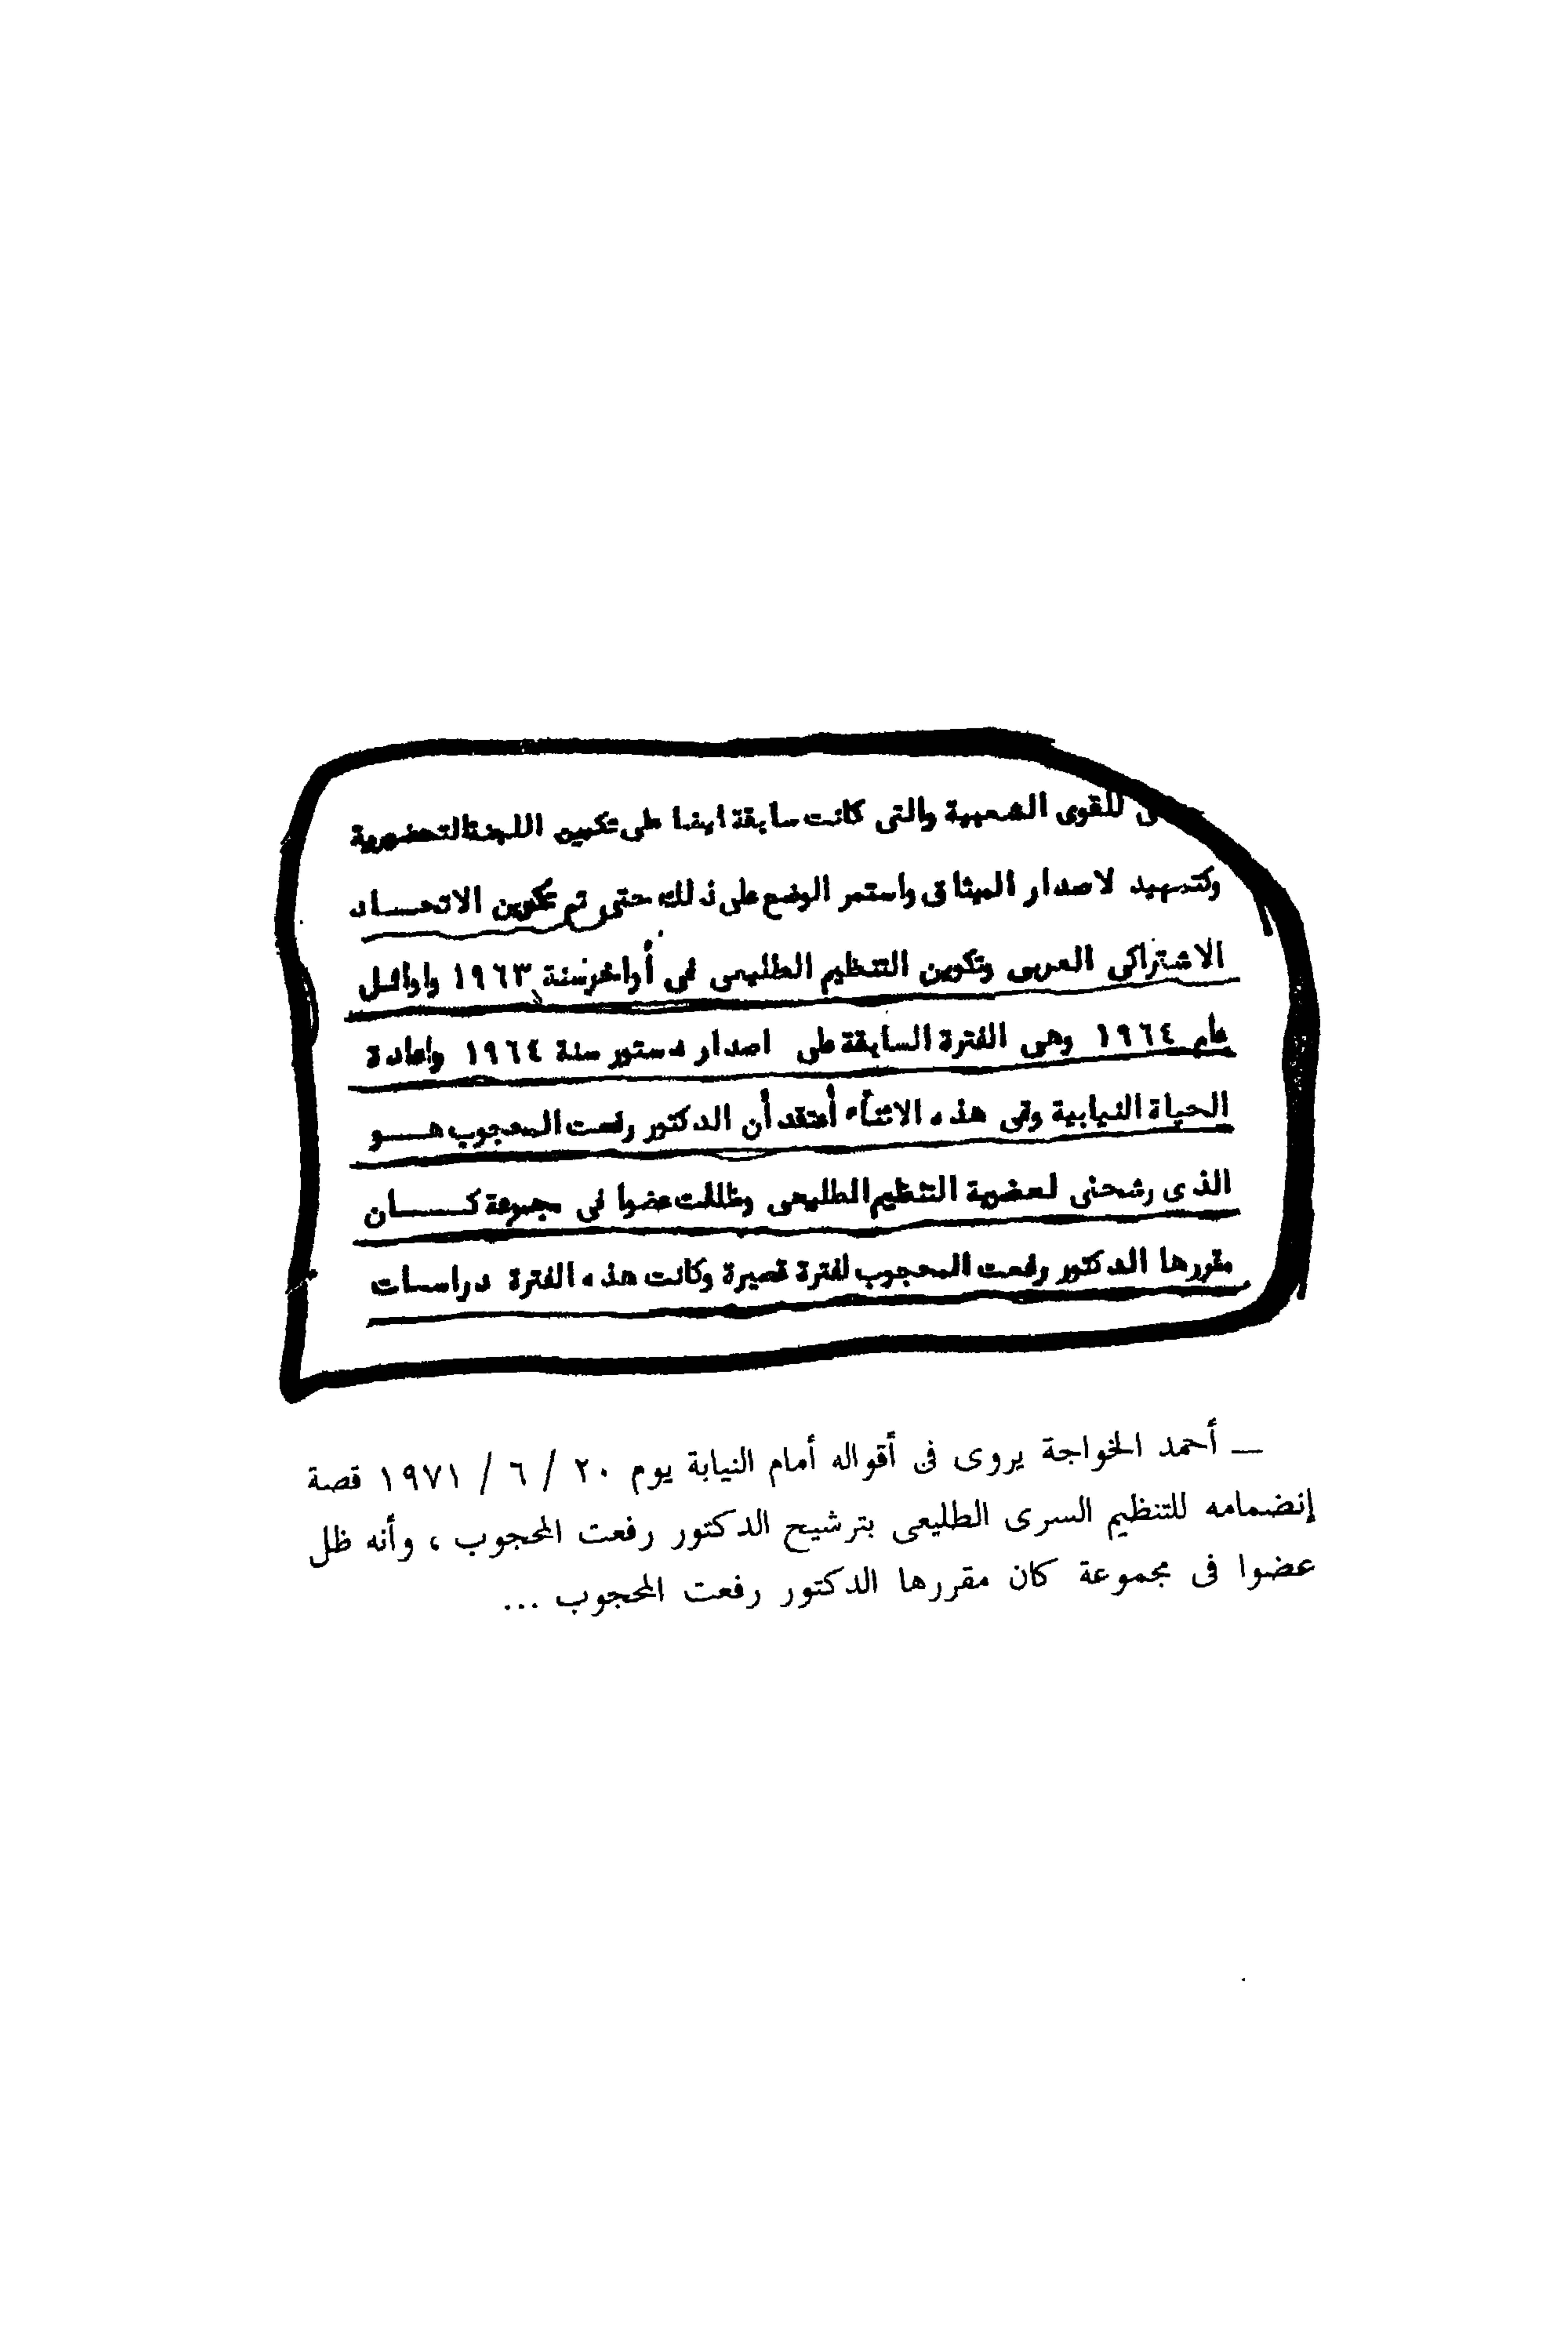 للقوى الشعبية والتى كانت سابقة ايضا على تكوين اللجنة التحضيرية
وكتمهيد لاصدار الميثاق واستمر الوضع على ذلك حتى تم تكوين الاتحـــاد
الاشتراكى العربى وتكوين التنظيم الطليعى فى أواخر سنة ١٩٦٣ واوائـل
عام ١٩٦٤ وهى الفترة السابقة على اصدار دستور سنة ١٩٦٤ واعادة
الحياة النيابية وفى هذه الاثناء أعتقد أن الدكتور رفعت المحجوب هـــو
الذى رشحنى لعضوية التنظيم الطليعى وظللت عضوا فى مجموعة كــــان
مقررها الدكتور رفعت المحجوب لفترة قصيرة وكانت هذه الفترة دراسات
ـــ أحمد الخواجة يروى فى أقواله أمام النيابة يوم ٢٠ / ٦ / ١٩٧١ قصة
إنضمامه للتنظيم السرى الطليعى بترشيح الدكتور رفعت المحجوب ، وأنه ظل
عضوا فى مجموعة كان مقررها الدكتور رفعت المحجوب ...